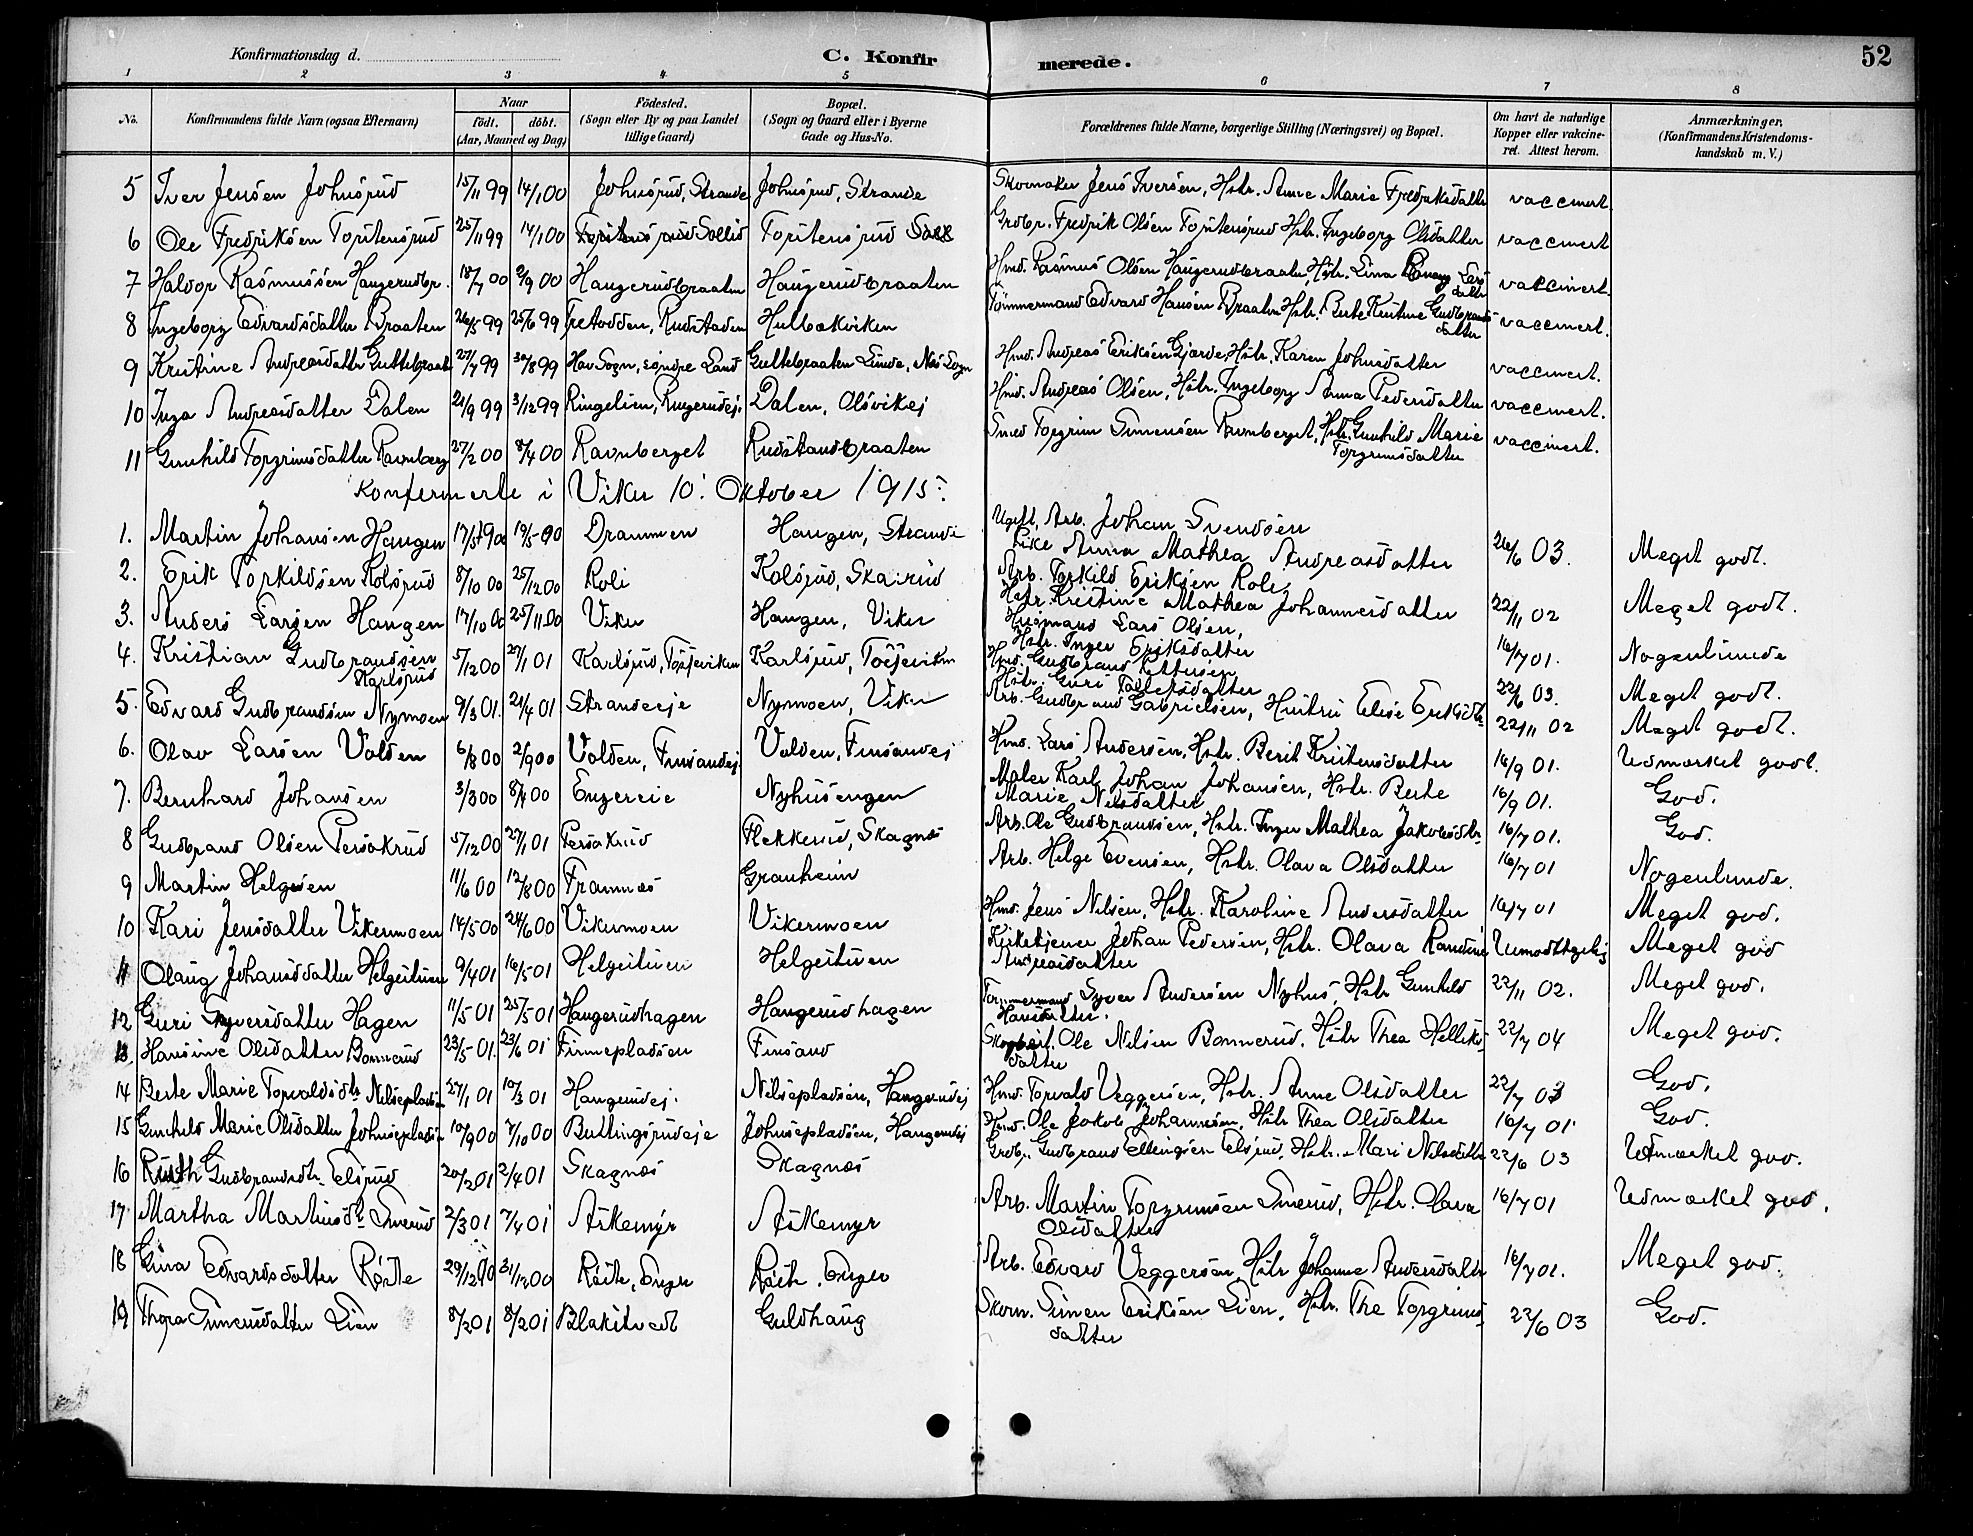 Konfirmationsdag d. C. Konfirmerede. 52
1 2 3 4 5 6 7 8
No. Konfirmandens fulde Navn (ogsaa Efternavn) Naar født. døbt. (Aar, Maaned og Dag) Födested. (Sogn eller By og paa Landet tillige Gaard) Bopæl. (Sogn og Gaard eller i Byerne Gade og Hus-No. Forældrenes fulde Navne, borgerlige Stilling (Næringsvei) og Bopæl. Om havt de naturlige Kopper eller vakcineret. Attest herom. Anmærkninger. (Konfirmandens Kristendomskundskab m. V.)
5 Iver Jensen Johnsrud 15/11 99 14/1 00 Johnsrud, Strande Johnsrud, Strande Skomaker Jens Iversen, Hstr. Anne Marie Fredriksdatter vaccinert
6 Ole Fredriksen Torstensrud 25/11 99 14/1 00 Torstensrud Sollid Torstensrud Grdbr. Fredrik Olsen Torstensrud Hstr. Ingeborg Olsdatter vaccinert
7 Halvor Rasmussen Haugerudbr. 18/7 00 2/9 00 Haugerudbraaten Haugerudbraaten Hmd. Rasmus Olsen Haugerudbraaten, Hstr. Lina Larsdatter vaccinert.
8 Ingeborg Edvardsdatter Braaten 26/5 99 25/6 99 Hulbakviken Tømmermand Edvard Hansen Braaten Hstr. Berte Kristine Gudbrandsdatter vaccinert.
9 Kristine Andreasdatter Guttebraaten 27/7 99 30/8 99 Hov Sogn, søndre Land Guttebraaten Lunde, Nes Sogn Hmd. Andreas Eriksen Gjærde, Hstr. Karen Johnsdatter vaccinert.
10 Inga Andreasdatter Dalen 21/9 99 3/12 99 Ringelien, Ringerudej. Dalen, Olsvikej Hmd. Andreas Olsen, Hstr. Ingeborg Anna Pedersdatter vaccinert.
11 Gunhild Torgrimsdatter Ravnberg 27/2 00 8/4 00 Ravnberget Rudstandbraaten Smed Torgrim Simensen Ravnberget, Hstr. Gunhild Marie Torgrimsdatter vaccinert.
Konfirmerte i Viker 10. Oktober 1915.
1. Martin Johansen Haugen 17/5 90 19/5 90 Drammen Haugen, Strande Ugift, Arb. Johan Svendsen
Pike Anna Mathea Andreasdatter 26/6 03. Meget godt.
2. Erik Torkildsen Kolsrud 8/10 00 25/12 00 Roli Kolsrud, Skairud Arb. Torkild Eriksen Role,
Hstr. Kristine Mathea Johannesdatter 22/11 02 Meget godt.
3. Anders Larsen Haugen 17/10 00 25/11 00 Viker Haugen, Viker Husmand Lars Olsen,
Hstr. Inger Eriksdatter 16/7 01. Nogenlunde
4. Kristian Gudbrandsen Karlsrud 5/12 00 27/1 01 Karlsrud, Tosseviken Karlsrud, Tosseviken Hmd. Gudbrand Pettersen
Hstr. Guri Tollefsdatter 22/6 03. Meget godt.
5. Edvard Gudbrandsen Nymoen 9/3 01. 21/4 01 Strandeeje Nymoen, Viker Arb. Gudbrand Gabrielsen, Hustru Elise Eriksdtr. 22/11 02 Meget godt.
6. Olav Larsen Volden 6/8 00 2/9 00 Volden, Finsandej Volden, Finsandej Hmd. Lars Andersen, Hstr. Berit Kristensdatter 16/9 01. Udmærket godt.
7. Bernhard Johansen 3/3 00 8/4 00 Engereie Nyhusengen Maler Karl Johan Johansen, Hstr. Berte
Marie Nilsdatter 16/9 01. God.
8 Gudbrand Olsen Persokrud 5/12 00 27/1 01 Persokrud Flekkerud, Skagnæs Arb. Ole Gudbrandsen, Hstr. Inger Mathea Jakobsdtr. 16/7 01. God.
9 Martin Helgesen 11/6 00 12/8 00 Framnæs Granheim Arb. Helge Evensen, Hstr. Olava Olsdatter 16/7 01 Nogenlunde.
10 Kari Jensdatter Vikermoen 14/5 00 24/6 00 Vikermoen Vikermoen Hmd. Jens Nilsen, Hstr. Karoline Andersdatter 16/7 01 Meget god.
11 Olaug Johansdatter Helgestuen 9/4 01 16/5 01 Helgestuen Helgestuen Kirketjener Johan Pedersen, Hstr. Olava Randine
Andreasdatter Uimodtagelig Meget god
12 Guri Syversdatter Hagen 11/5 01 25/5 01 Haugerudhagen Haugerudhagen Tømmermand Syver Andersen Nyhus, Hstr Gunhild
Hansdatter. 22/11 02. Meget god.
13. Hansine Olsdatter Bonnerud 23/5 01. 23/6 01 Finneplassen Finsand Ole Nilsen Bonnerud, Hstr Thea Helliksdatter 22/7 04 Meget god.
14 Berte Marie Torvaldsdtr Nilsepladsen 27/1 01 10/3 01 Haugerudej. Nilsepladsen, Haugerudej Hmd. Torvald Veggersen, Hstr. Anne Olsdatter 22/7 03 God.
15 Gunhild Marie Olsdatter Johnsepladsen 10/9 00 7/10 00 Bullingsrudeje Johnsepladsen, Haugerudej Hmd. Ole Jakob Johannesen, Hstr Thea Olsdatter 16/7 01 God.
16 Ruth Gudbrandsdtr. Elsrud 20/2 01 2/4 01 Skagnæs Skagnæs Grdbr. Gudbrand Ellingsen Elsrud, Hstr. Mari Nilsdatter 22/6 03 Udmærket god.
17. Martha Martinsdtr Smerud 2/3 01 7/4 01 Askemyr Askemyr Arb. Martin Torgrimsen Smerud, Hstr. Olava
Olsdatter 16/7 01 Udmærket god.
18 Gina Edvardsdatter Røste 29/12 00 31/12 00 Røste, Enger Røste, Enger Arb. Edvard Veggersen, Hstr Johanne Andersdatter 16/7 01. Meget god.
19 Thora Simensdatter Lien 8/2 01 8/2 01 Blakstvedt Guldhaug Skom. Simen Eriksen Lien, Hstr. Thea Torgrimsdatter 22/6 03 God.